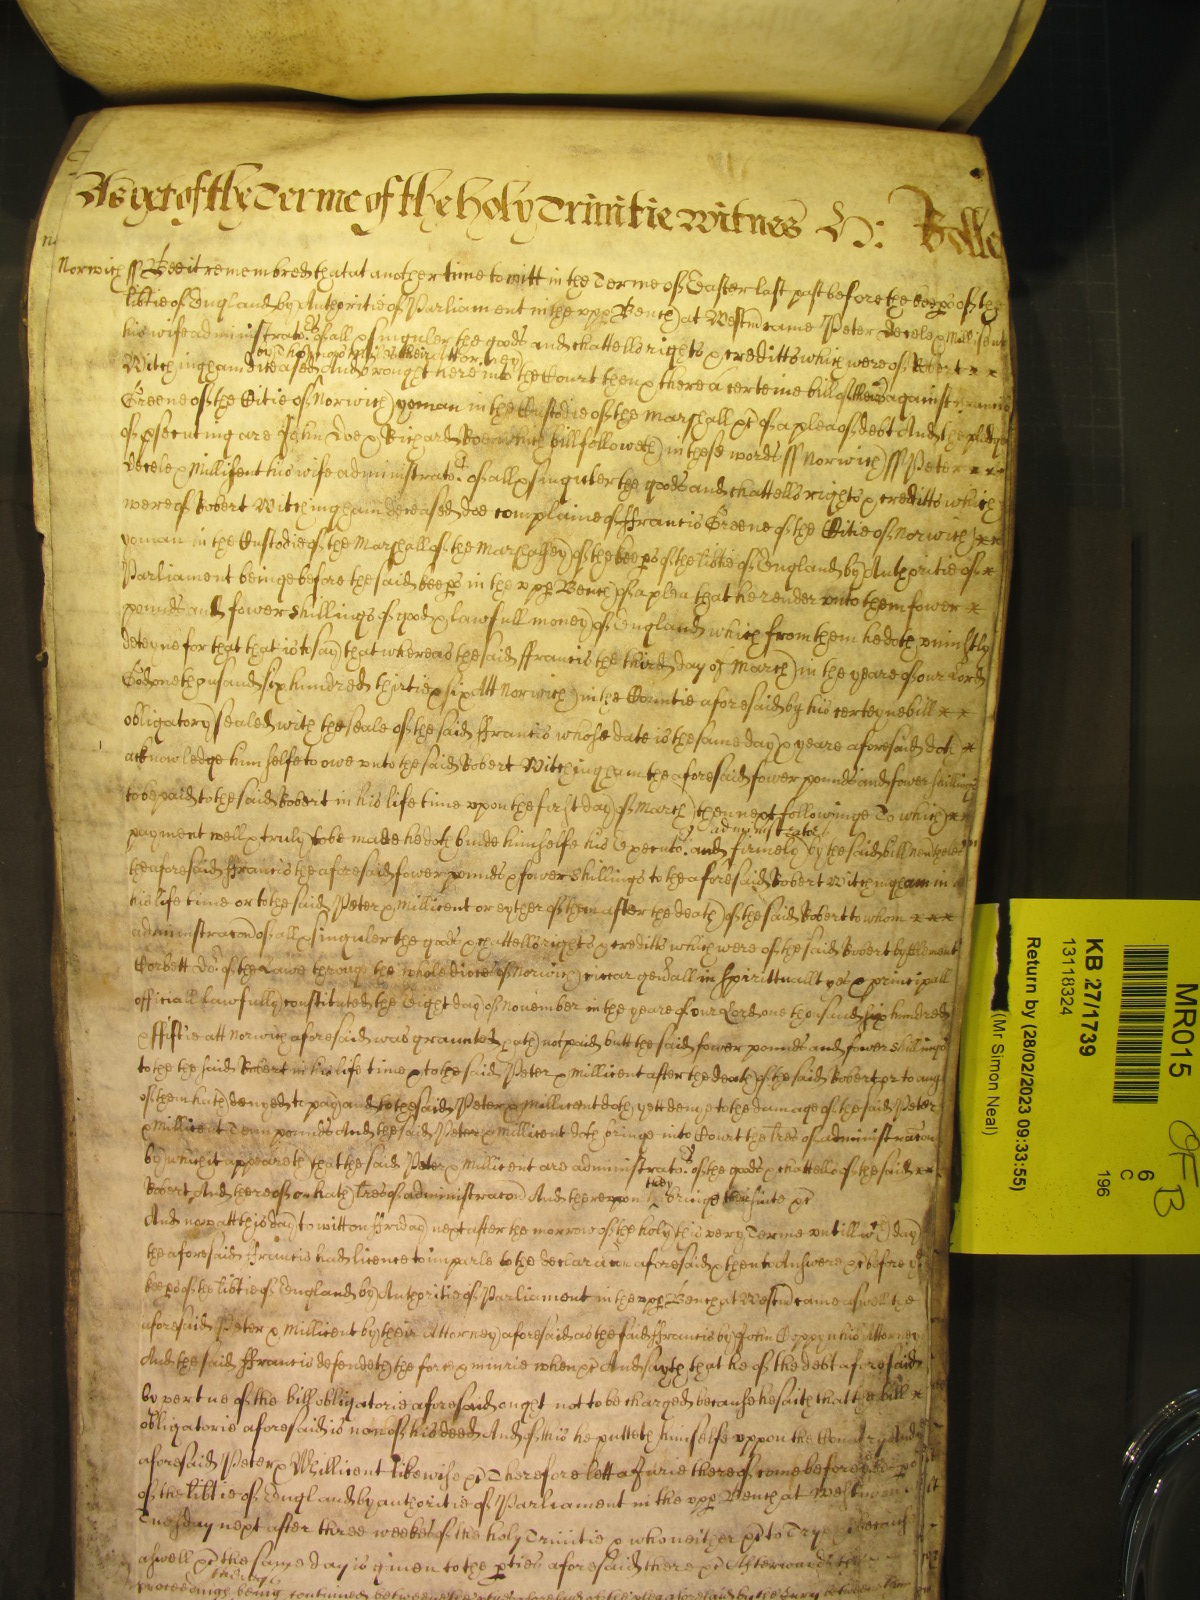 As yet of the Terme of the holy Trinitie witnes H: Rolle
Norwich ss Bee it remembred that at another time to witt in the Terme of Easter last past before the keeps of the
libtie of England by Authoritie of Parliament in the vpp Bench at Westm came Peter Decele & Millisent
his wife administrators of all & singuler the goods and chattells rights & creditts which were of Robert
Witchingham deceased And brought here into the Court then & there a certeine bill of theirs against Francis
Greene of the Citie of Norwich yoman in the Custodie of the Marshall &c of a plea of debt And the pledges
of psecuting are John Doe & Richard Roe which bill followeth in these words ss Norwich ss Peter
Decele & Millisent his wife administrators of all & singuler the goods and chattells rights & creditts which
were of Robert Witchingham deceased doe complaine of ffrancis Greene of the Citie of Norwich
yoman in the Custodie of the Marshall of the Marshalsey of the keeps of the libtie of England by Authoritie of
Parliament beinge before the said keeps in the vpp Bench of a plea that he render vnto them fower
pounds and fower shillings of good & lawfull money of England which from them he doth vniustly
deteyne for that that is to say that whereas the said ffrancis the third day of March in the yeare of our Lord
God one thousand six hundred thirtie & six Att Norwich in the Countie aforesaid by his certeyne bill
obligatory sealed with the seale of the said ffrancis whose date is the same day & yeare aforesaid doth
acknowledge himselfe to owe vnto the said Robert Witchingham the aforesaid fower pounds and fower shillings
to be paid to the said Robert in his life time vpon the first day of March then next followinge To which
payment well & truly to be made he doth binde himselfe his Executors administrators and firmely by the said bill neuertheles
the aforesaid ffrancis the aforesaid fower pounds & fower shillings to the aforesaid Robert Witchingham in
his life time or to the said Peter & Millicent or eyther of them after the death of the said Robert to whom
administracon of all & singuler the goods & chattells rights & creditts which were of the said Robert by Clement
Corbett Dor of the Lawe through the whole dioces of Norwich viccar genall in spirittuallties & principall
officiall lawfully constituted the Eight day of November in the yeare of our Lord one thousand six hundred
& fiftie att Norwich aforesaid was graunted hath not paid butt the said fower pounds and fower shillings
to the the said Robert in his life time & to the said Peter & Millicent after the death of the said Robert or to any
of them hath denyed to pay and to the said Peter & Millicent doth yett denye to the damage of the said Peter
& Millicent Tenn pounds And the said Peter & Millicent doth bringe into Court the lres of administracon
by which it appeareth that the said Peter & Millicent are administrators of the goods & chattells of the said
Robert And thereof hath lres of administracon And therevpon they bringe their suite &c
And now att this day to witt on ffriday next after the morrow of the holy this very Terme vntill wch day
the aforesaid ffrancis had licence to imparle to the declaracon aforesaid & then to Answere &c before ye
keeps of the libtie of England by Authoritie of Parliament in the vpp Bench at Westm came aswell the
aforesaid Peter & Millicent by their Attorney aforesaid as the said ffrancis by John Coppyn his Attorney
And the said ffrancis defendeth the force & iniurie when &c And sayth that he of the debt aforesaid
by vertue of the bill obligatorie aforesaid ought not to be charged because he saith that the bill
obligatorie aforesaid is not his deed And of this he putteth himselfe vppon the Countrey And
aforesaid Peter & Millicent likewise &c Therefore lett a Jurie thereof come before the keeps
of the libtie of England by authoritie of Parliament in the vpp Bench at Westm on
Tuesday next after three weekes of the holy Trinitie & who neither &c to Trye because
aswell &c the same day is giuen to the pties aforesaid there &c Afterwards the
proceedings being continued betweene the pties aforesaid of the plea aforesaid by the Jury
MR015
KB 27/1739
13118324
Return by (28/02/2023 09:33:55)
(Mr Simon Neal)
6
C
196